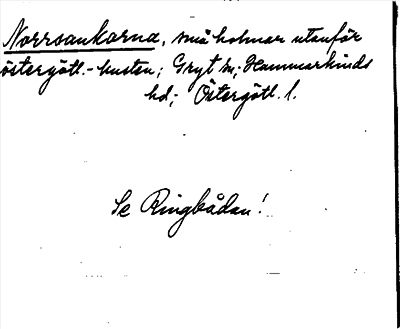 Norrsankarna, små holmar utanför
östergötl.-kusten; Gryt sn; Hammarkinds
hd; Östergötl. l.
Se Ringbådan!